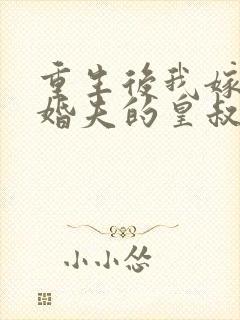 重生後我嫁
婚夫的皇叔
小小怂